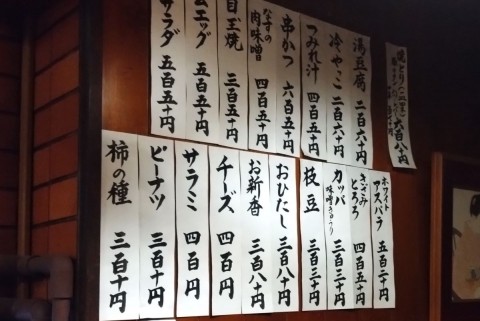 湯豆腐 二百六十円
冷やっこ 二百六十円
つみれ汁 四百五十円
串かつ 六百五十円
なすの肉味噌 四百五十円
目玉焼 三百五十円
ムエッグ 五百五十円
サラダ 五百五十円
ホワイトアスパラ 五百二十円
きざみとろろ 四百五十円
カッパ 味噌きゅうり 三百三十円
枝豆 三百三十円
おひたし 三百八十円
お新香 三百八十円
チーズ 四百円
サラミ 四百円
ピーナツ 三百十円
柿の種 三百十円